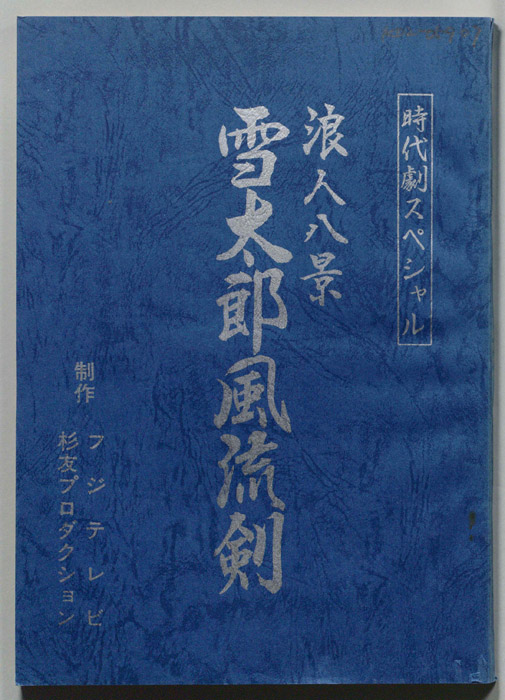 時代劇スペシャル
浪人八景
雪太郎風流剣
制作
フジテレビ
杉友プロダクション